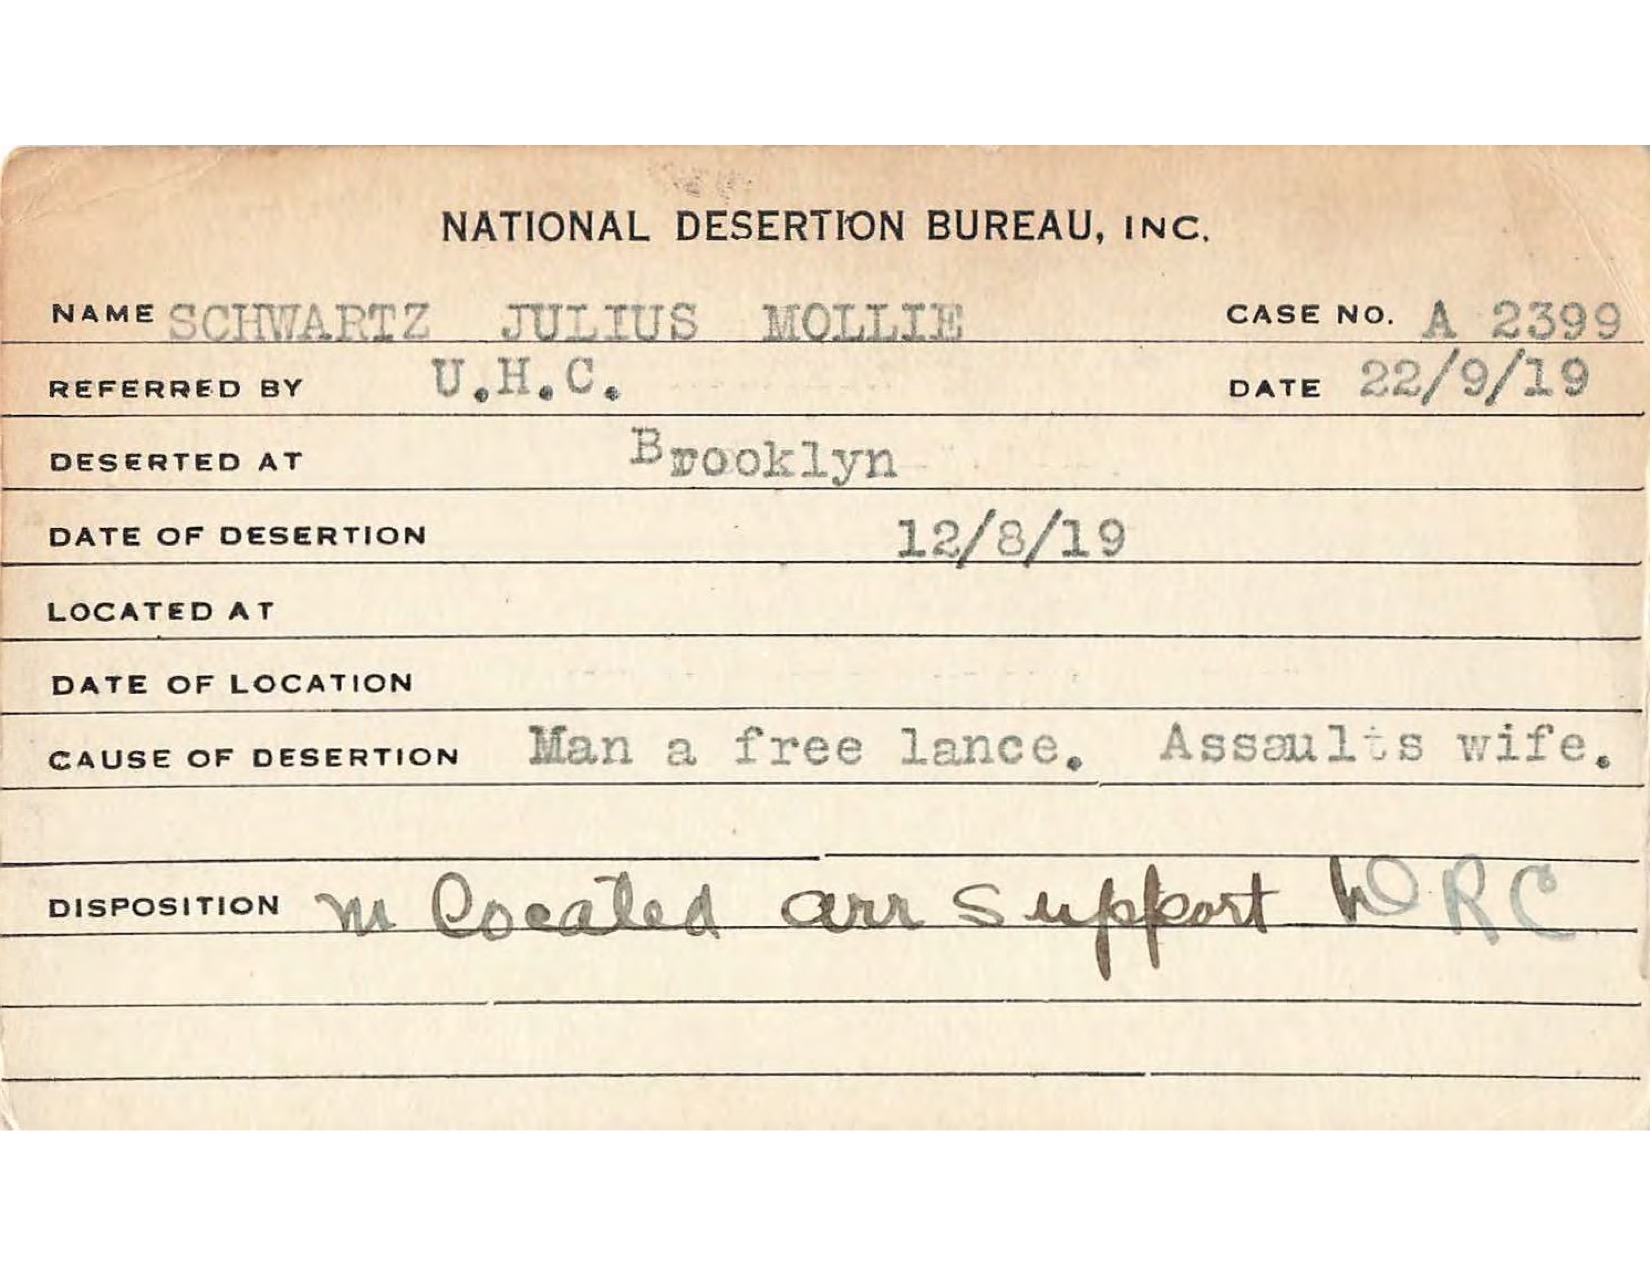 NATIONAL DESERTION BUREAU, INC.
NAME SCHWARTZ JULIUS MOLLIE CASE NO. A 2399
REFERRED BY U.H.C. DATE 22/9/19
DESERTED AT Brooklyn
DATE OF DESERTION 12/8/19
LOCATED AT
DATE OF LOCATION
CAUSE OF DESERTION Man a free lance. Assaults wife.
DISPOSITION m located arr support DRC